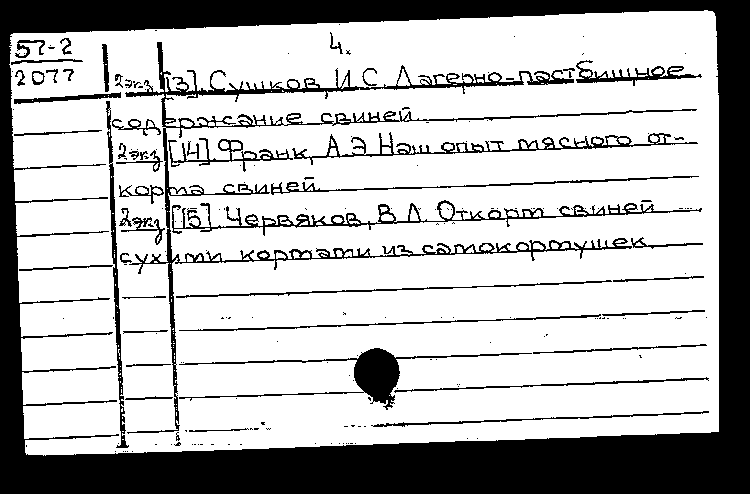 57-2
2077
4.
2экз [13]. Сушков, И.С. Лагерно-пастбищное
содержание свиней.
2экз [14]. Франк, А.Э. Наш опыт мясного от-
корма свиней.
2экз [15]. Червяков, В.Л. Откорм свиней
сухими кормами из самокормушек.